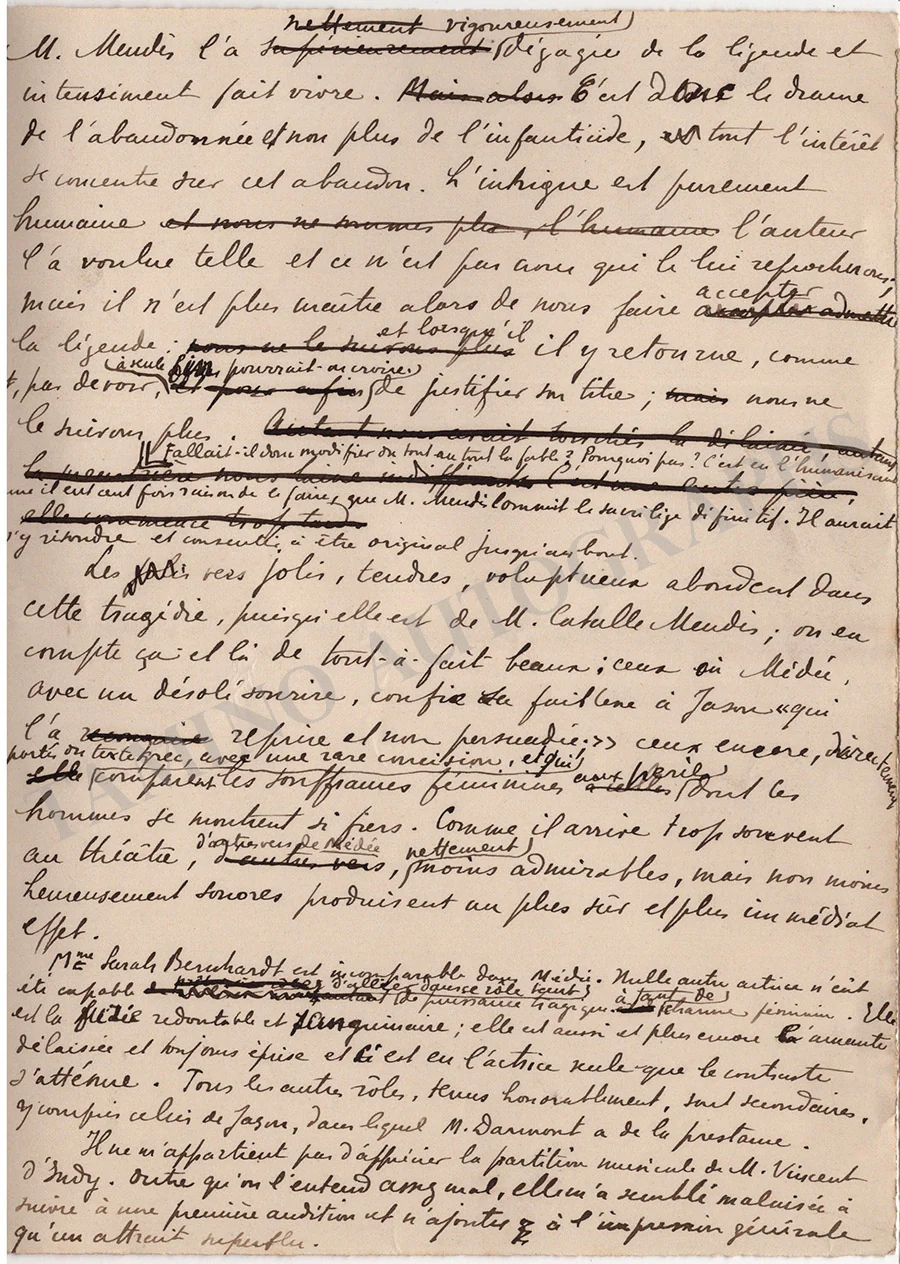 nettement vigoureusement
M. Mendès l'a supérieurement dégagée de la légende et
intensément fait vivre. Mais alors C'est donc le drame
de l'abandonnée et non plus de l'infanticide, tout l'intérêt
se concentre sur cet abandon. L'intrigue est purement
humaine et nous ne sommes plus l'humaine l'auteur
l'a voulue telle et ce n'est pas nous qui le lui reprocherons ;
mais il n'est plus maître alors de nous faire accepter admettre
accepter
la légende : nous ne le suivons plus et lorsqu'il il y retourne, comme
à seule fin pourrait-on croire
, par devoir, et pour enfin de justifier son titre ; mais nous ne
le suivons plus. Autant nous avait touchés la délaissée, autant
Fallait-il donc modifier du tout au tout la fable ? Pourquoi pas ? C'est en l'humanisant
la meurtrière nous laisse indifférents
me il eut cent fois raison de le faire, que M. Mendès commit le sacrilège définitif. Il aurait
elle commence trop tard
s'y résoudre et consentir à être original jusqu'au bout.
Les vers jolis, tendres, voluptueux abondent dans
cette tragédie, puisqu'elle est de M. Catulle Mendès ; on en
compte çà et là de tout-à-fait beaux : ceux où Médée,
avec un désolé sourire, confie sa faiblesse à Jason « qui
l'a reconquise reprise et non persuadée. » ceux encore, directement
portés du texte grec, avec une rare concision, et qui
elle comparent les souffrances féminines à celles aux périls dont les
hommes se montrent si fiers. Comme il arrive trop souvent
au théâtre, d'autres vers de Médée d'autres vers, nettement moins admirables, mais non moins
heureusement sonores produisent un plus sûr et plus immédiat
effet.
Mme Sarah Bernhardt est incomparable dans Médée. Nulle autre actrice n'eût
été capable d'allier dans ce rôle tant
autant de puissance tragique à tant de charme féminin. Elle
est la furie redoutable et sanguinaire ; elle est aussi et plus encore l'amante
délaissée et toujours éprise et c'est en l'actrice seule que le contraste
s'atténue. Tous les autres rôles, tenus honorablement, sont secondaires,
y compris celui de Jason, dans lequel M. Darmont a de la prestance.
Il ne m'appartient pas d'apprécier la partition musicale de M. Vincent
d'Indy. Outre qu'on l'entend assez mal, elle m'a semblé malaisée à
suivre à une première audition et n'ajouter à l'impression générale
qu'un attrait superflu.
TAHINO AUTOGRAPHS